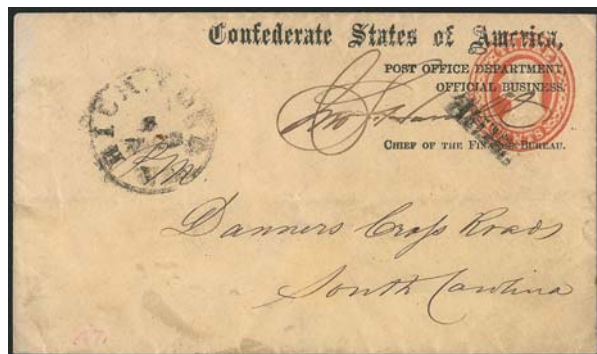 Confederate States of America,
POST OFFICE DEPARTMENT,
OFFICIAL BUSINESS.
CHIEF OF THE FINANCE BUREAU.
RICHMOND
PM.
Danners Cross Roads
South Carolina